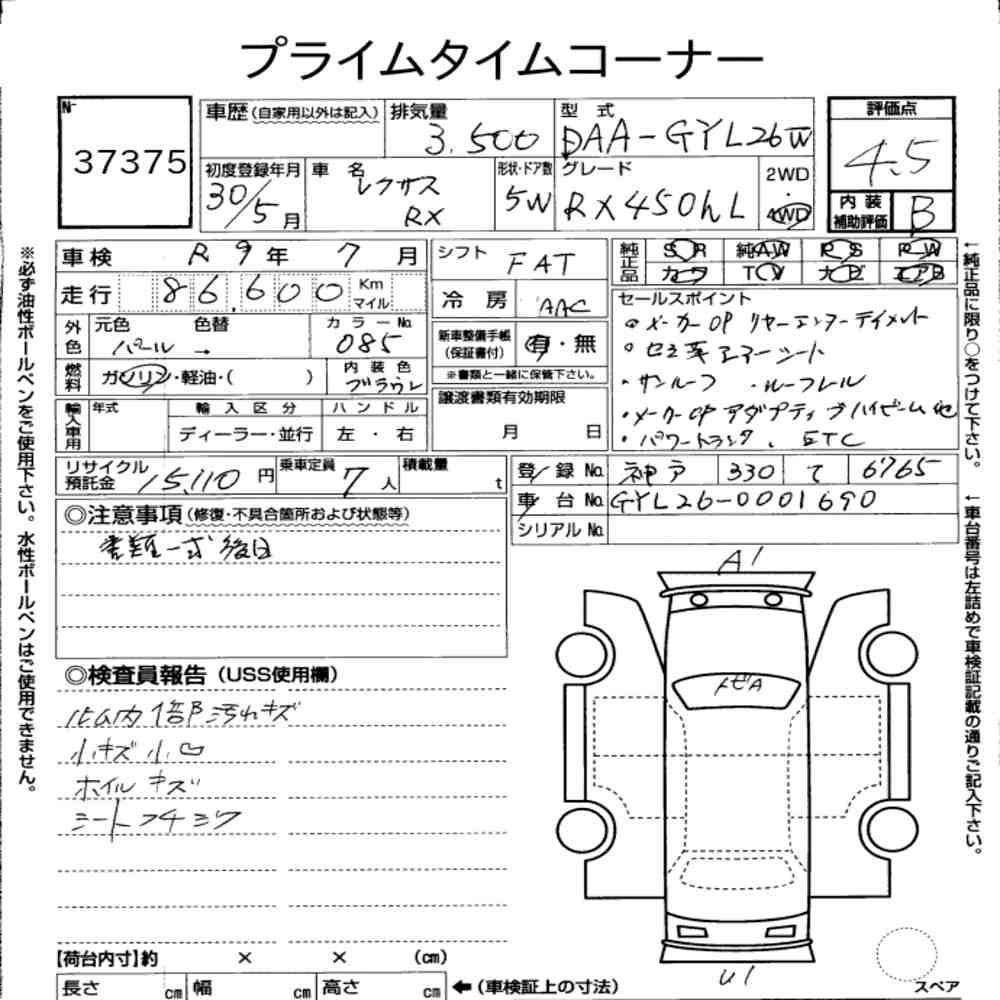 プライムタイムコーナー
№
37375
車歴(自家用以外は記入)
排気量
3,500
型式
DAA-GYL26W
評価点
4.5
初度登録年月
30/5月
車名
レクサス
RX
形状・ドア数
5W
グレード
RX450hL
2WD
・
4WD
内装
補助評価
B
車検 R9年 7月
走行 86,600 Km
マイル
外色
元色 色替
パール →
カラーNo.
085
燃料
ガソリン・軽油・( )
内装色
ブラウン
輸入車用
年式
輸入区分
ディーラー・並行
ハンドル
左・右
シフト FAT
冷房 AAC
新車整備手帳
(保証書付)
有・無
※書類と一緒に保管下さい。
譲渡書類有効期限
月 日
純正品
SR 純AW PS PW
カワ TV ナビ エアB
セールスポイント
・メーカーOP リヤーエンターテイメント
・サンルーフ ・ルーフレール
・メーカーOP アダプティブハイビーム他
・パワートランク、ETC
リサイクル
預託金
15,110円
乗車定員
7人
積載量
t
登録No. 神戸 330 て 6765
車台No. GYL26-0001690
シリアルNo.
◎注意事項(修復・不具合箇所および状態等)
書類一式後日
◎検査員報告(USS使用欄)
小キズ小凹
ホイルキズ
シートフチジワ
A1
トビA
U1
スペア
【荷台内寸】約 × × (cm)
長さ cm 幅 cm 高さ cm ←(車検証上の寸法)
※必ず油性ボールペンをご使用下さい。水性ボールペンはご使用できません。
←純正品に限り○をつけて下さい。
←車台番号は左詰めで車検証記載の通りご記入下さい。